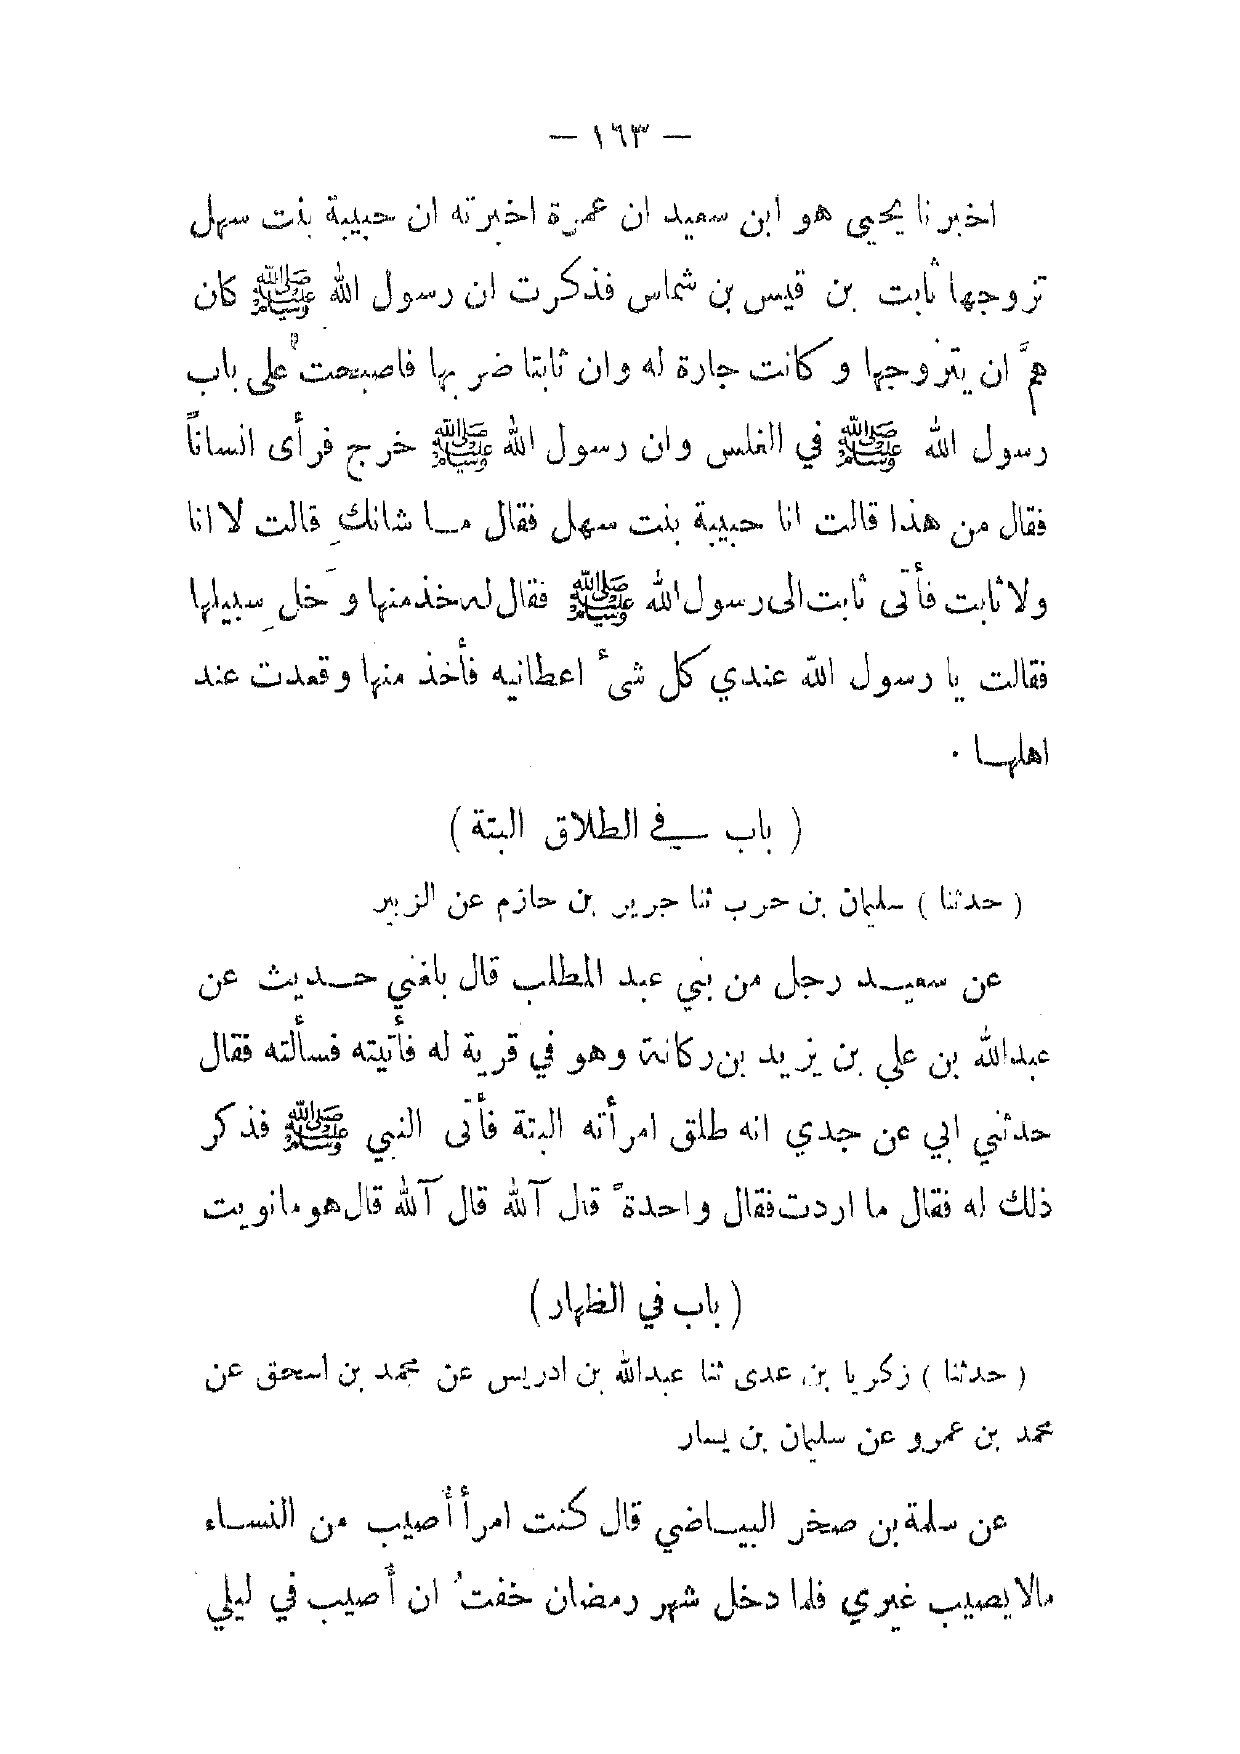 — ١٦٣ —
اخبرنا يحيى هو ابن سعيد ان عمرة اخبرته ان حبيبة بنت سهل
تزوجها ثابت بن قيس بن شماس فذكرت ان رسول الله ﷺ كان
همَّ ان يتزوجها وكانت جارة له وان ثابتا ضربها فاصبحت على باب
رسول الله ﷺ في الغلس وان رسول الله ﷺ خرج فرأى انساناً
فقال من هذا قالت انا حبيبة بنت سهل فقال مـا شانكِ قالت لا انا
ولا ثابت فأتى ثابت الى رسول الله ﷺ فقال له خذ منها وخَلِ سبيلها
فقالت يا رسول الله عندي كل شئ اعطانيه فأخذ منها وقعدت عند
اهلهـا .
( باب في الطلاق البتة )
( حدثنا ) سليمان بن حرب ثنا جرير بن حازم عن الزبير
عن سعيـد رجل من بني عبد المطلب قال بلغني حـديث عن
عبدالله بن علي بن يزيد بن ركانة وهو في قرية له فأتيته فسألته فقال
حدثني ابي عن جدي انه طلق امرأته البتة فأتى النبي ﷺ فذكر
ذلك له فقال ما اردت فقال واحدةً قال آلله قال آلله قال هو ما نويت
( باب في الظهار )
( حدثنا ) زكريا بن عدى ثنا عبدالله بن ادريس عن محمد بن اسحق عن
محمد بن عمرو عن سليمان بن يسار
عن سلمة بن صخر البيـاضي قال كنت امرأ أصيب من النسـاء
مالا يصيب غيري فلما دخل شهر رمضان خفتُ ان أصيب في ليلي